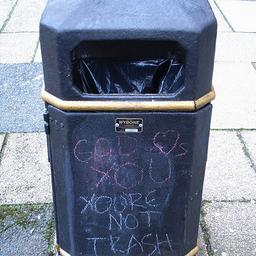 WYBONE
GOD ♡s
YOU
YOURE
NOT
TRASH